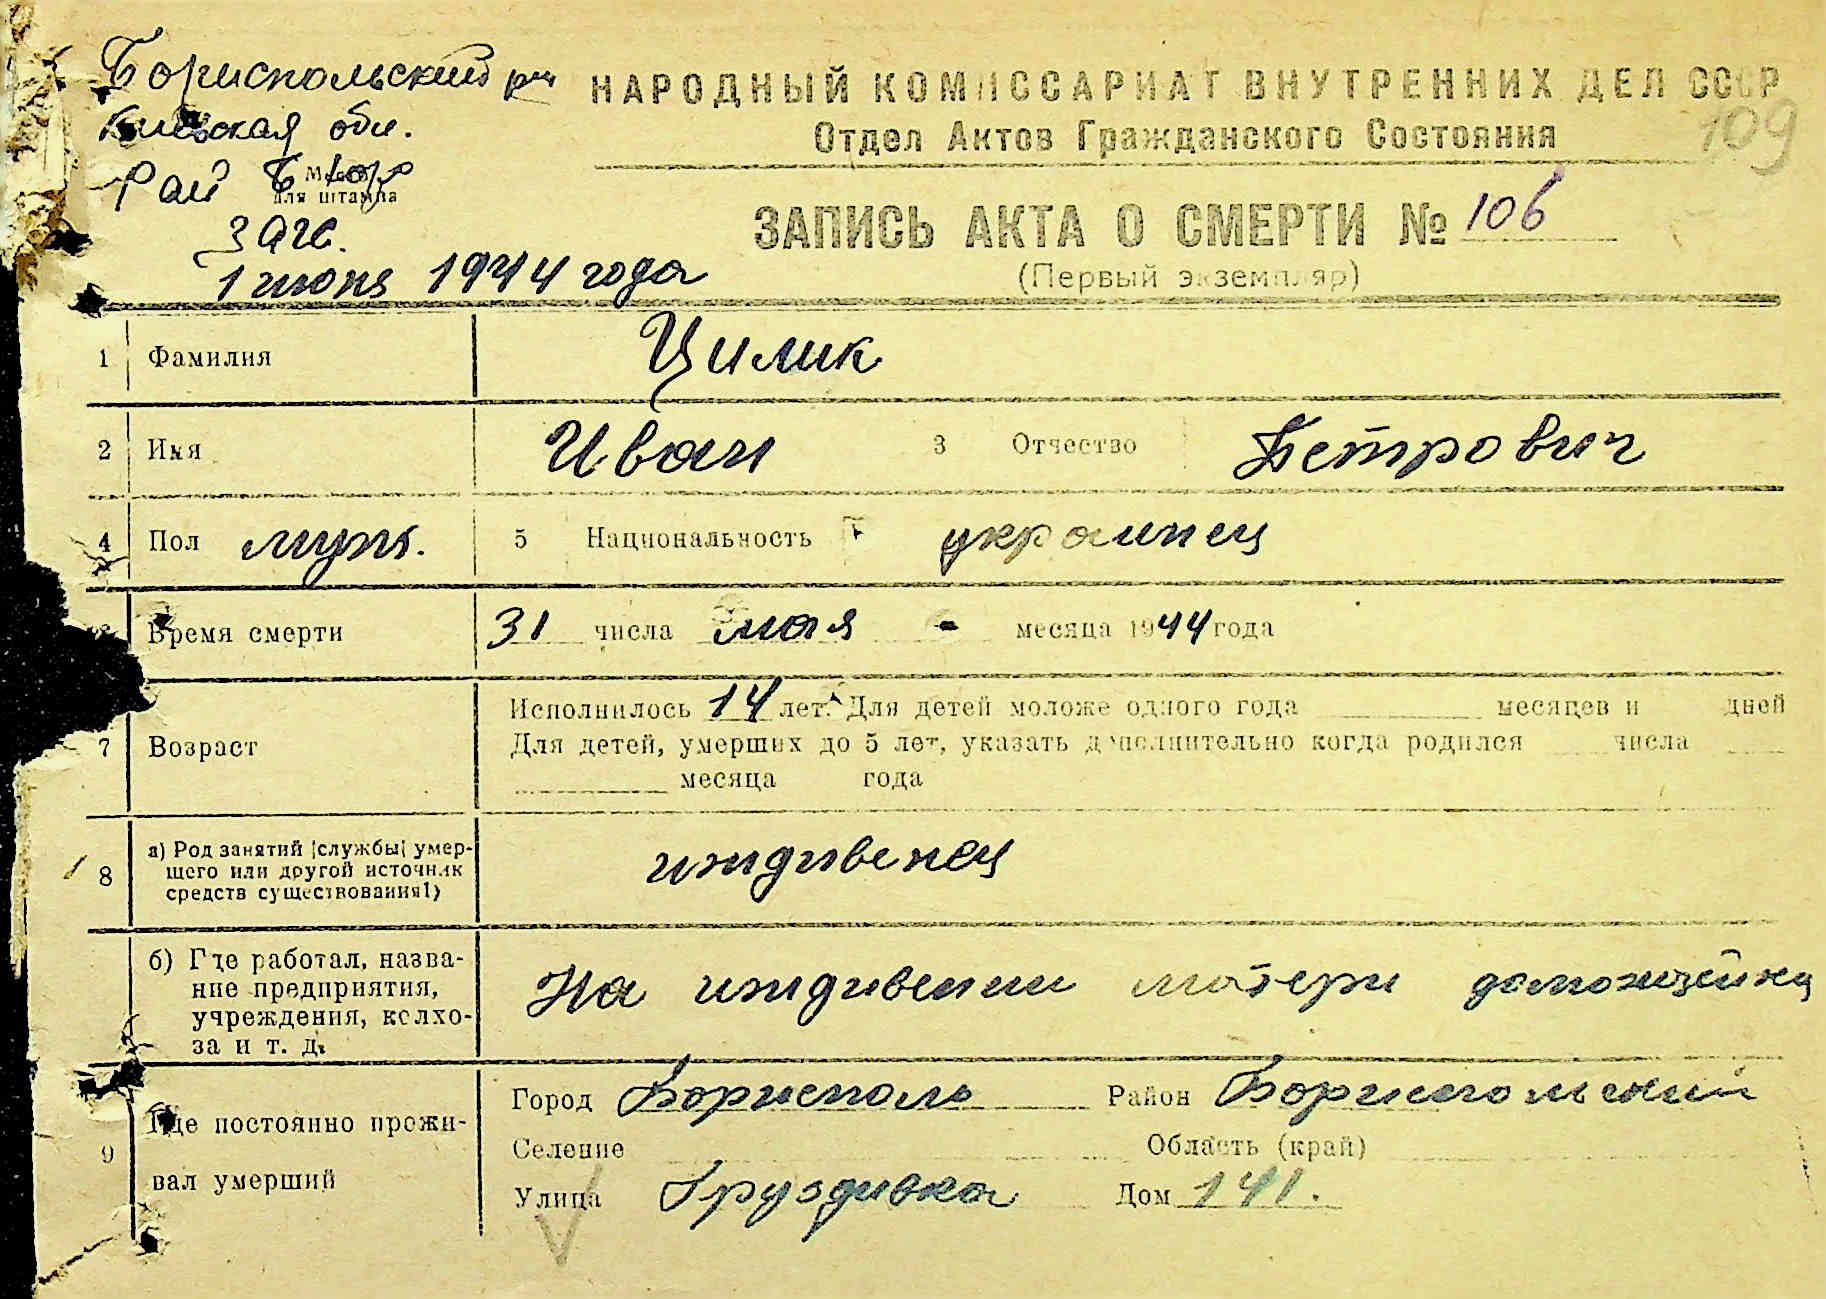 Бориспольский р-н
Киевская обл.
Рай Бюро
Место
для штампа
загс.
1 июня 1944 года
НАРОДНЫЙ КОМИССАРИАТ ВНУТРЕННИХ ДЕЛ СССР
109
Отдел Актов Гражданского Состояния
ЗАПИСЬ АКТА О СМЕРТИ № 106
(Первый экземпляр)
1 Фамилия Цилик
2 Имя Иван 3 Отчество Петрович
4 Пол муж. 5 Национальность украинец
Время смерти 31 числа мая месяца 1944 года
Исполнилось 14 лет. Для детей моложе одного года месяцев и дней
7 Возраст Для детей, умерших до 5 лет, указать дополнительно когда родился числа
месяца года
8 а) Род занятий (службы) умер-
шего или другой источник
средств существования1)
иждивенец
б) Где работал, назва-
ние предприятия,
учреждения, колхо-
за и т. д.
На иждивении матери домохозяйки
9 Где постоянно прожи-
вал умерший
Город Борисполь Район Бориспольский
Селение Область (край)
Улица Груздивка Дом 141.